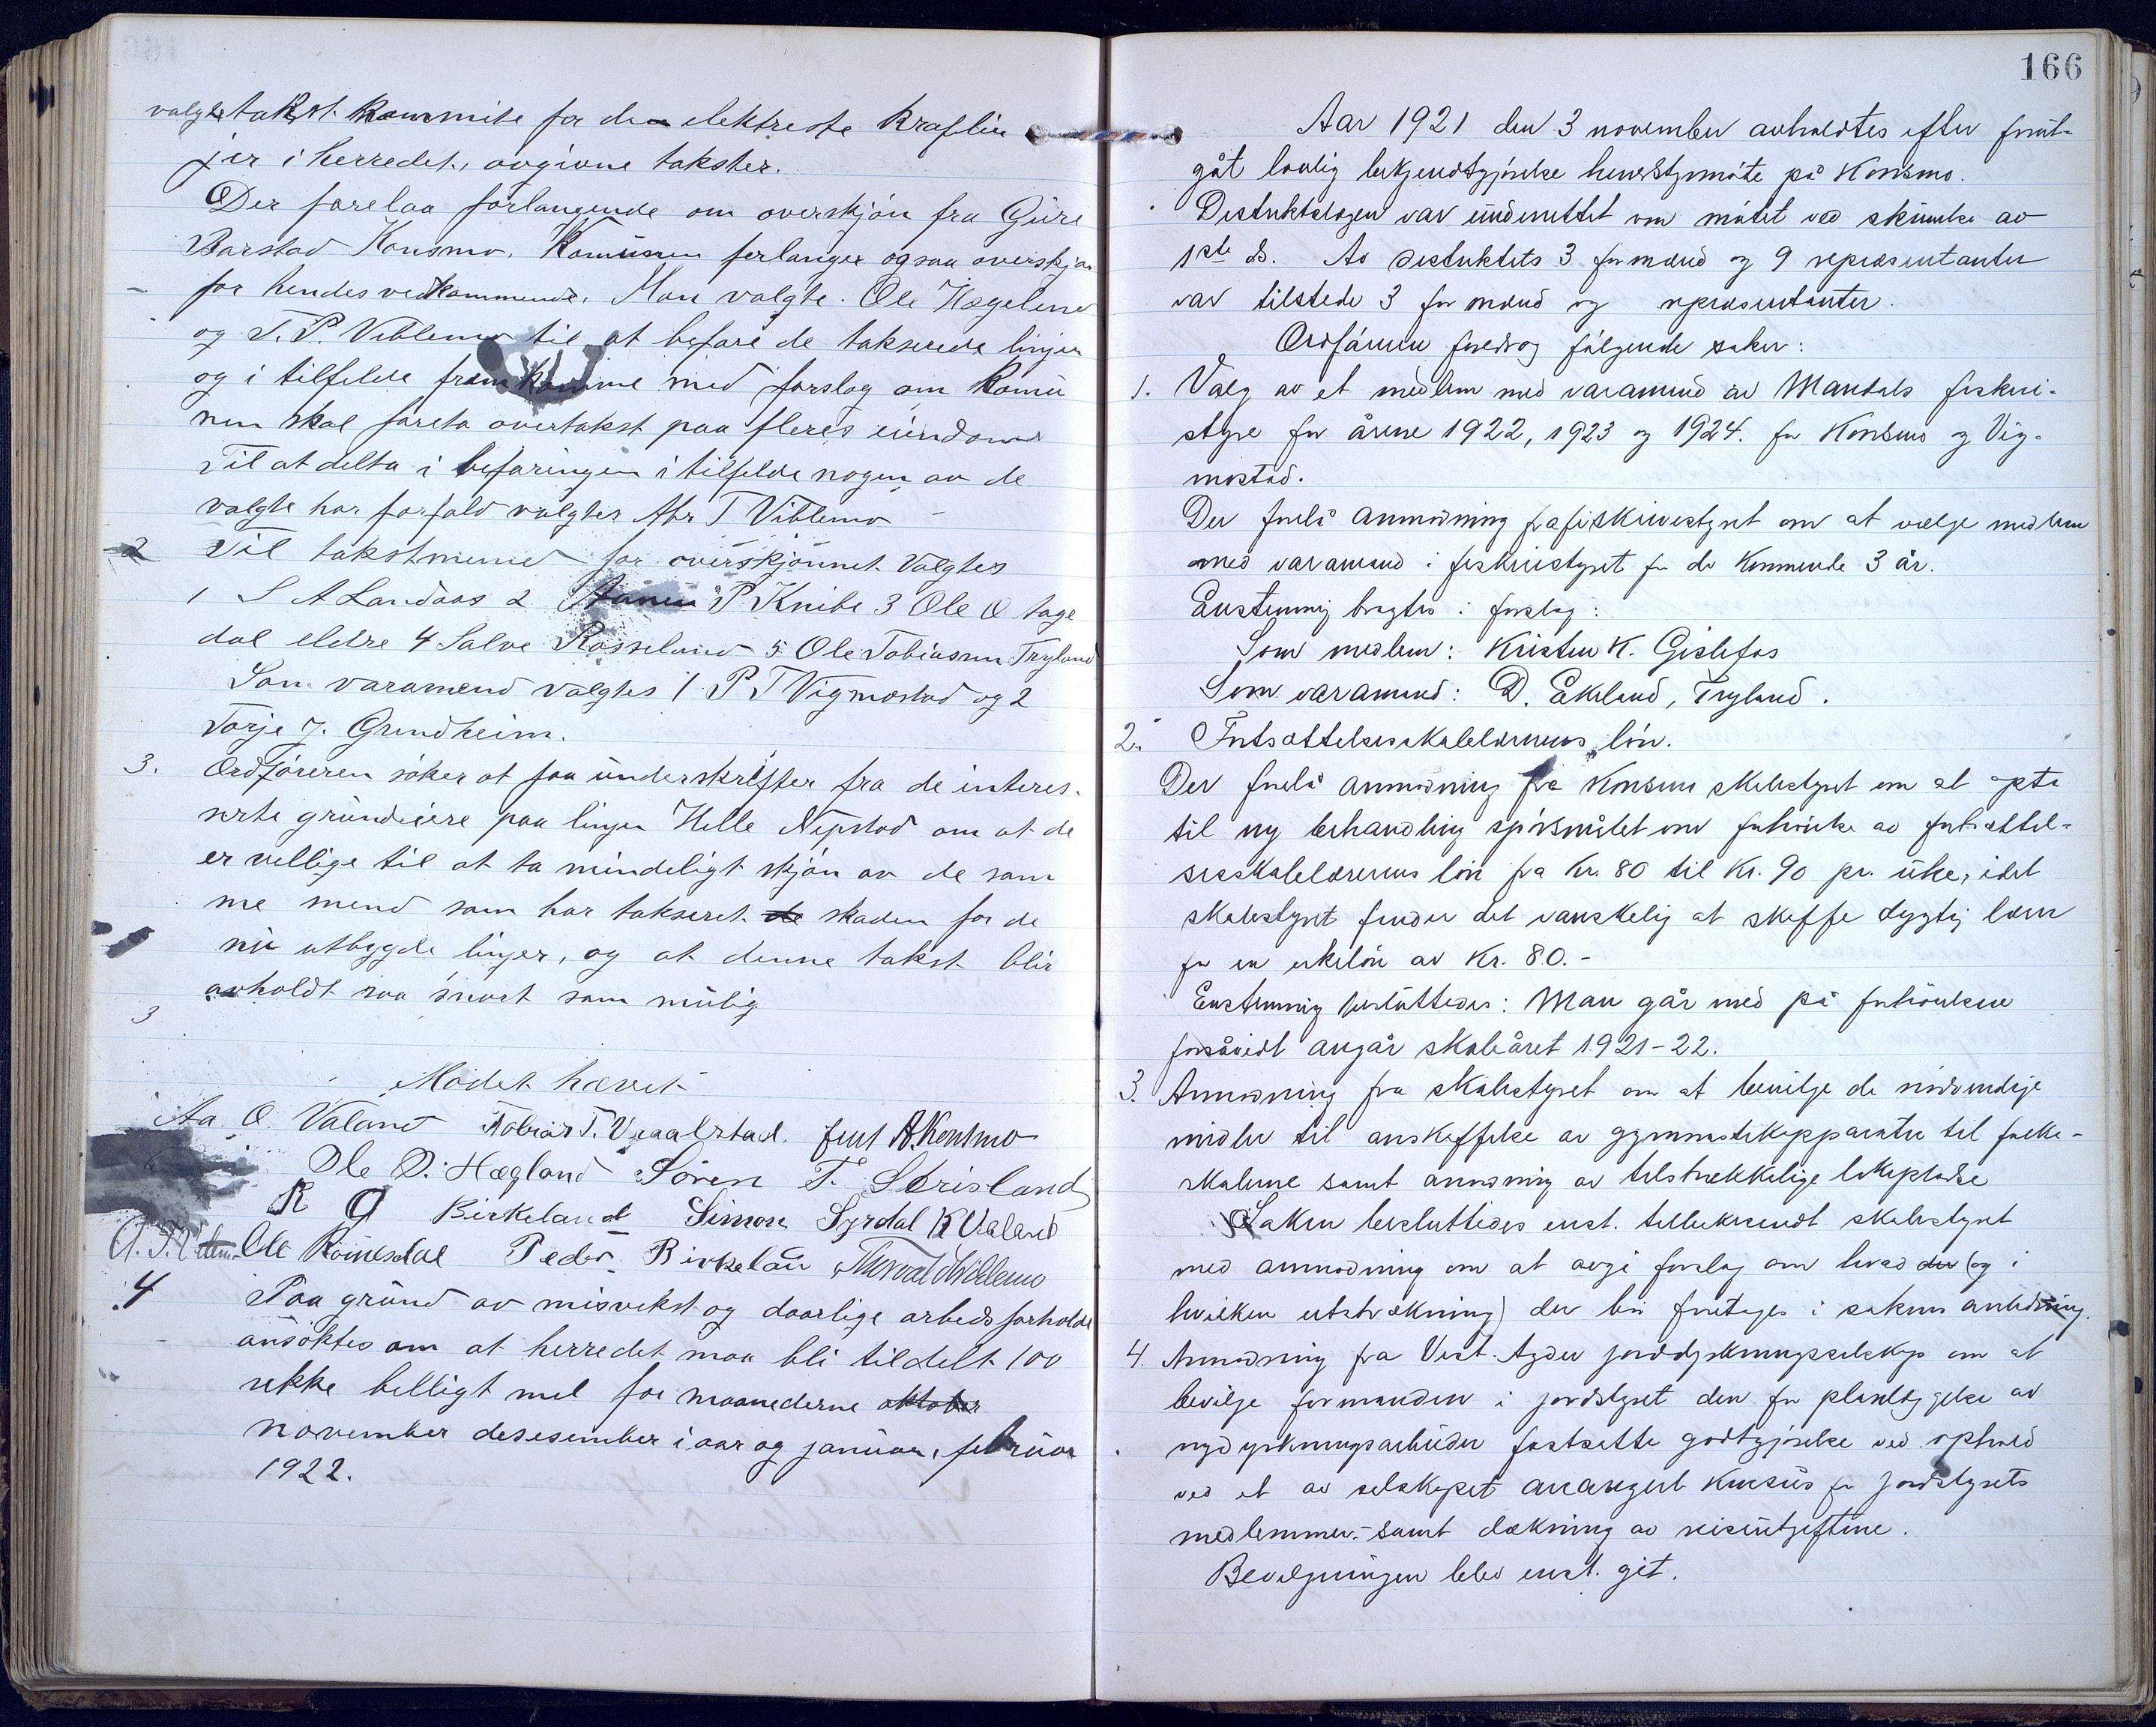 valgte takst kommite for de elektriste kraflin
jer i herredet, avgivne takster.
Der forelaa forlangende om overskjön fra Gúre
Barstad Konsmo. Komúnen forlanger ogsaa overskjøn
for hendes vedkommende. Man valgte. Ole Hægeland
og T. P. Viblemo til at befare de takserede linjer
og i tilfelde fremkomme med forslag om komú
nen skal foreta overtakst paa fleres eiendome
Til at delta i befaringen i tilfelde nogen av de
valgte har forfald valgtes Abr T Viblemo
2 Til takstmend for overskjönnet valgtes
1 S A Landaas 2 P Knibe 3 Ole O tage
dal eldre 4 Salve Rosseland 5 Ole Tobiasen Tryland
Som varamend valgtes 1 P T Vigmostad og 2
Torje J. Grundheim.
3. Ordföreren söker at faa únderskrifter fra de interes-
serte grúndeiere paa linjen Helle Nepstad om at de
er vellige til at ta mindeligt skjön av de sam
me mend som har takseret de skaden for de
nú utbygde linjer, og at denne takst blir
avholdt saa snart som múlig
3
Mödet hævet
Aa. O. Valand Tobias T. Vraalstad. Jens A. Konsmo
Ole O. Hægland Sören T. Leirsland
R O Birkeland Simon Syrdal K Valand
Ole Roinesdal Peder Birkelan Thorvald Viblemo
4 Paa grúnd av misvekst og daarlige arbedsforholde
ansöktes om at herredet maa bli tildelt 100
sekke billigt mel for maanederne oktober
november desesember i aar og janúar, febrúar
1922.
166
Aar 1921 den 3 november avholdtes efter forút-
gåt lovlig bekjendtgjörelse herredstyrmöte på Konsmo.
Destriktslægen var únderrettet om mötet ved skrivelse av
1ste ds. Av destriktets 3 formænd og 9 repræsentanter
var tilstede 3 formænd og repræsentanter.
Ordföreren foredrog fölgende saker:
1. Valg av et medlem med varamand av Mandals fiskeri-
styre for årene 1922, 1923 og 1924. for Konsmo og Vig-
mostad.
Der forelå anmodning fra fiskeristyret om at vælge medlem
med varamand i fiskeristyret for de kommende 3 år.
Enstemmig bragtes i forslag:
Som medlem: Kristen K. Gislefos
Som varamand: D. Ekeland, Tryland.
2. Fortsættelsesskolelærernes lön.
Der forelå anmodning fra Konsmo skolestyret om at opta
til ny behandling spörsmålet om forhöielse av fortsættel-
sesskolelærernes lön fra Kr. 80 til Kr. 90 pr. úke, idet
skolestyret finder det vanskelig at skaffe dygtig lærer
for en úkelön av Kr. 80.-
Enstemmig beslúttedes: Man går med på forhöielsen
forsåvidt angår skoleåret 1921-22.
3. Anmodning fra skolestyret om at bevilge de nödvendige
midler til anskaffelse av gymnastikapparater til folke-
skolerne samt anmodning av tilstrækkelige lekepladse
Saken beslúttedes enst. tilbakesendt skolestyret
med anmodning om at avgi forslag om hvad der (og i
hvilken utstrækning) der bör foretages i sakens anledning.
4. Anmodning fra Vest-Agder jorddyrkningsselskap om at
bevilge formanden i jordstyret den for planlæggelse av
nydyrkningsarbeider fastsatte godtgjörelse ved ophold
ved et av selskapet arangert kúrsús for jordstyrets
medlemmer.- samt dækning av reiseútgiftene.
Bevilgningen blev enst. git.